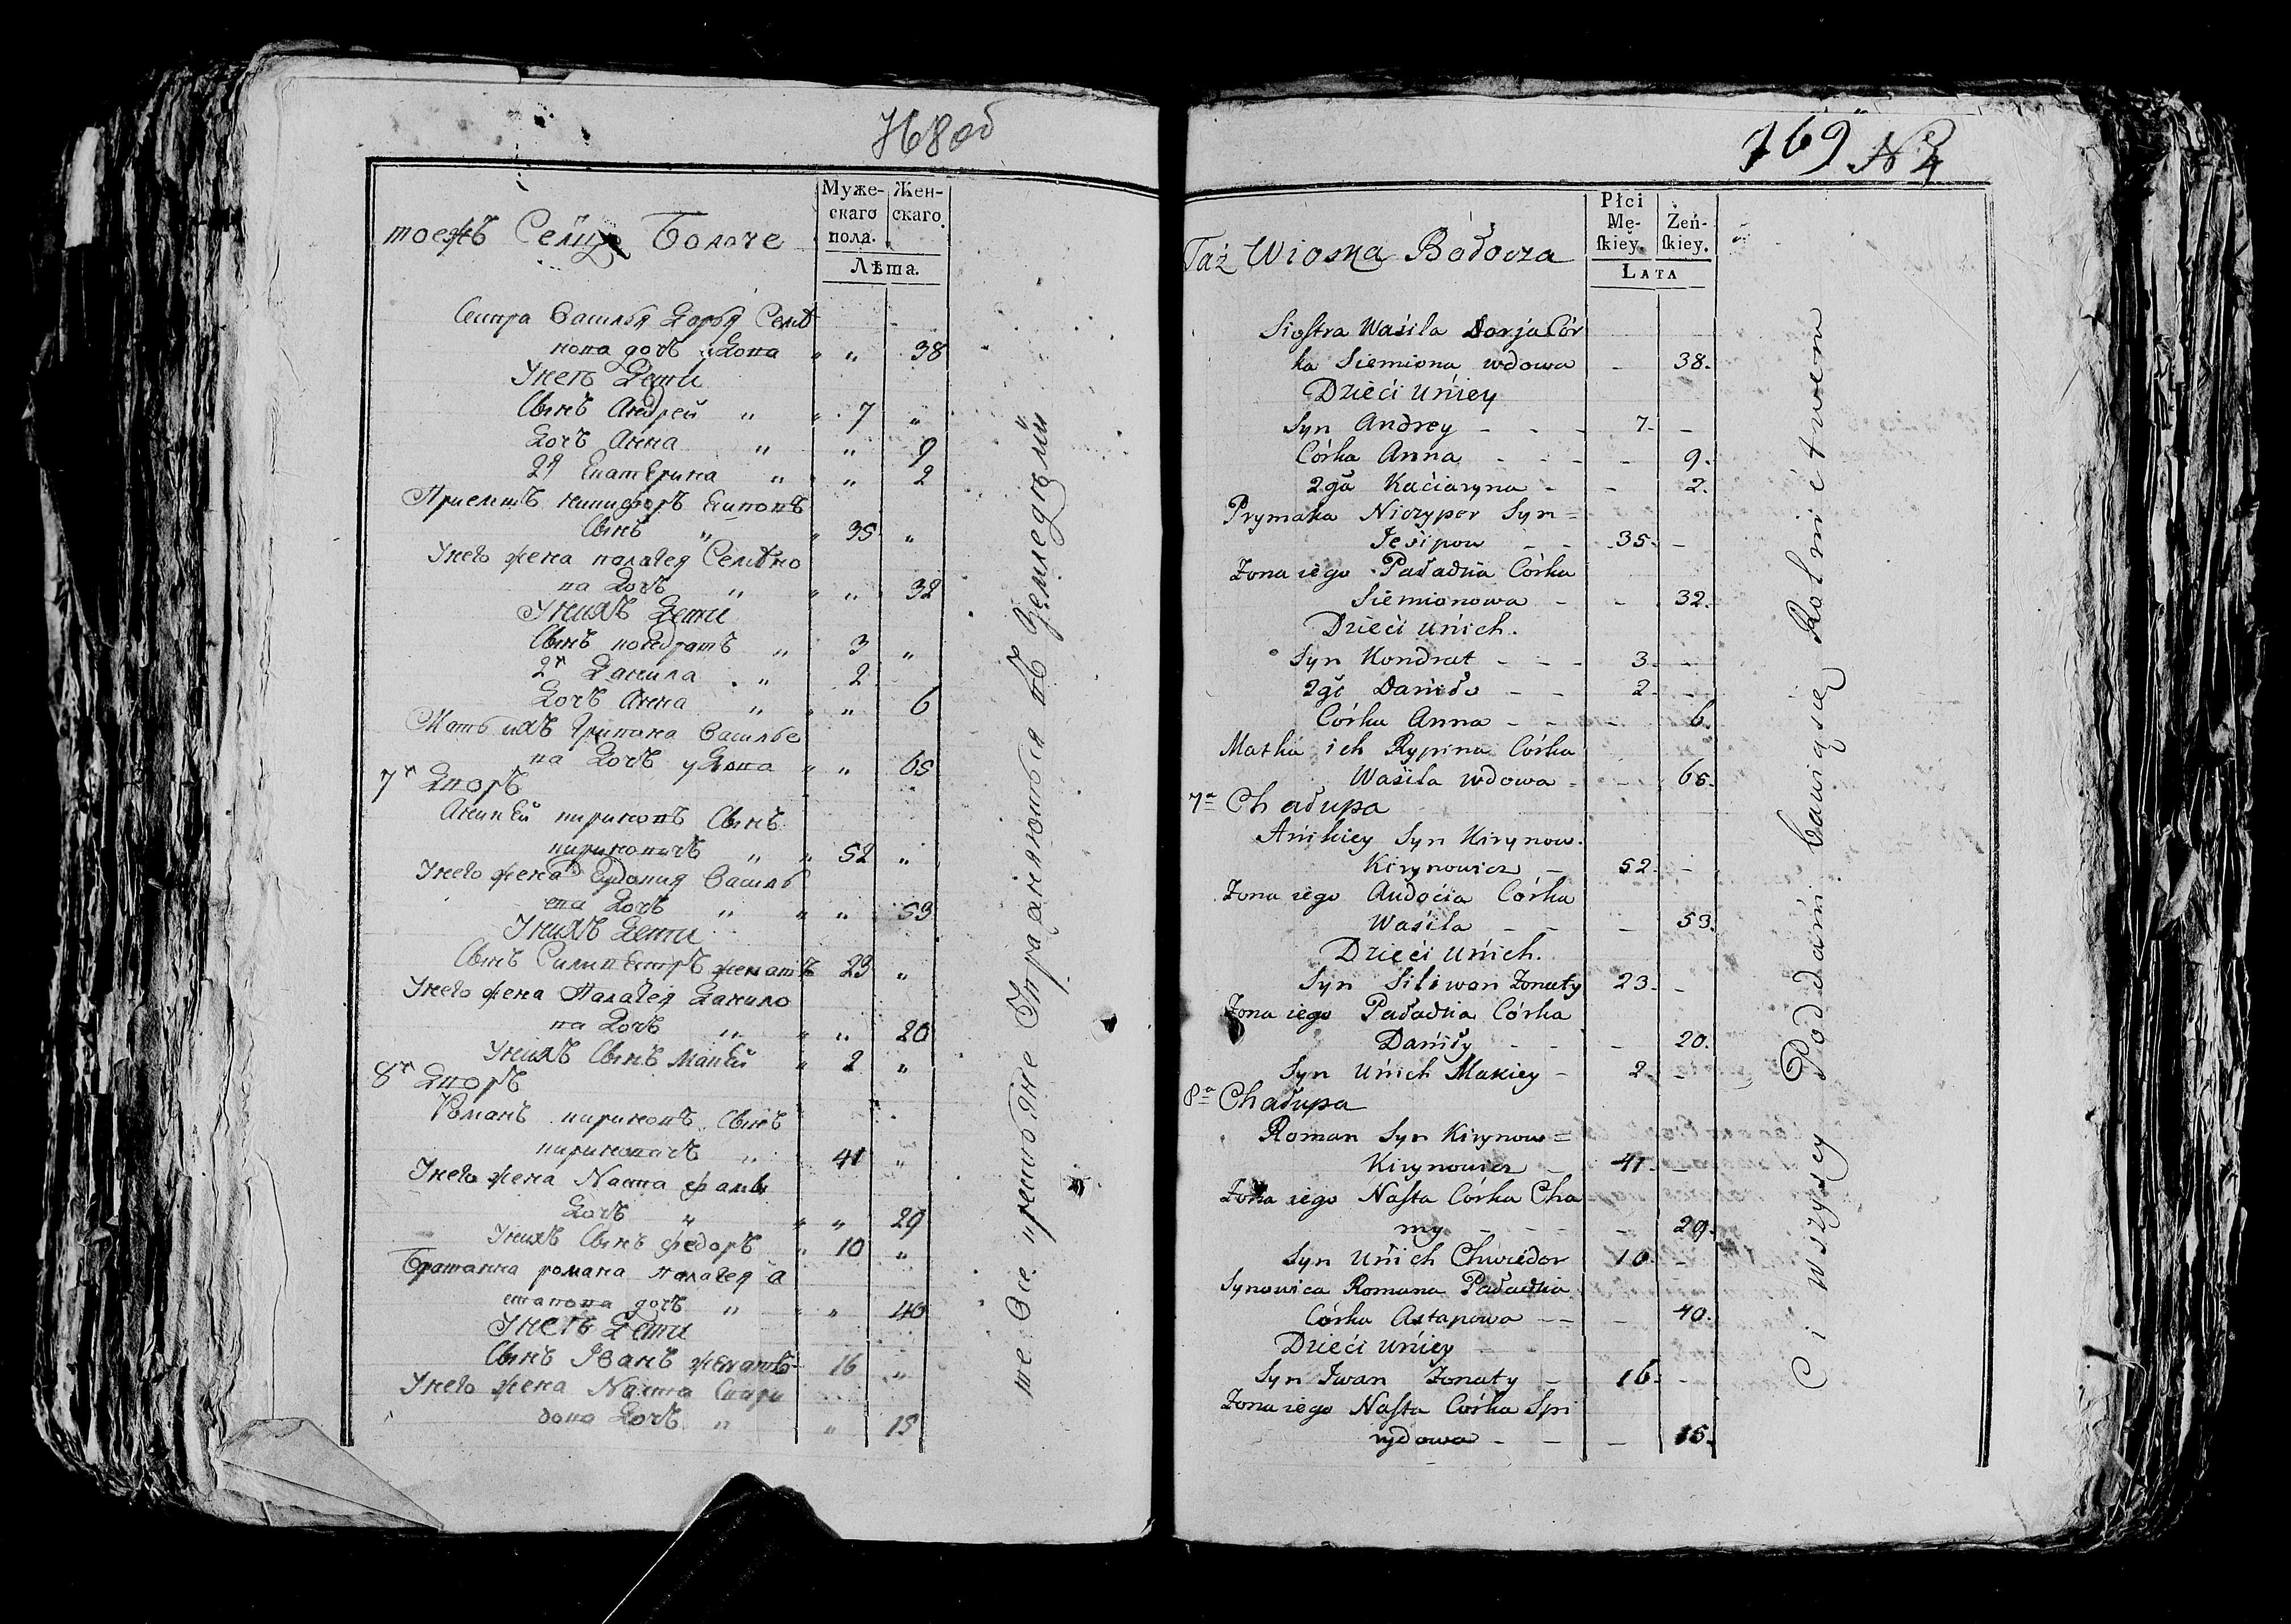 768 об
тоежъ Селцо Болоче
Муже-
скаго
пола.
Жен-
скаго.
Лѣта.
Сестра Василья Дарья Семѣ
нова дочь удова " " 38
Унеѣ Дети
Сынъ Андрей " " 7 "
Дочь Анна " " 9
2я Екатерина " " 2
Приемшъ никифоръ Есиповъ
Сынъ " " 35 "
Унего жена полагея Семѣно
ва Дочь " " " 32
Унихъ Дети
Сынъ кондратъ " 3 "
2й Данила " 2
Дочь Анна " " " 6
Мать ихъ Грипина Василье
ва Дочь удова " " 65
7й Дворъ
Аникѣй кириновъ Сынъ
кириновичъ " " 52 "
Унего жена Евдокия Василь
ева Дочь " " " 53
Унихъ Дети
Сынъ Силивестръ женатъ 23 "
Унего жена Палагея Данило
ва Дочь " " " 20
Унихъ Сынъ Макѣй " 2 "
8й Дворъ
Романъ кириновъ Сынъ
кириновичъ " 41 "
Унего жена Наста фамы
Дочь " " " 29
Унихъ Сынъ федоръ " 10 "
Братанна романа палагея а
стапова дочь " " " 40
Унеѣ Дети
Сынъ Иванъ женатъ 16 "
Унего жена Наста Спири
дона Дочь " " 15
те Все крестьяне Упражняются въ Земледѣлии
769 N 4
Taż Wioska Bołocza
Płci
Mę-
ſkiey.
Żeń-
ſkiey.
LATA
Siostra Wasila Darja Cór
ka Siemiona wdowa - 38.
Dzieći Uniey
Syn Andrey - - - 7. -
Córka Anna - - - - 9.
2ga Kaciaryna - - 2.
Prymaka Niczypor Syn =
Jesipow - - 35. -
Żona iego Pałachia Córka
Siemionowa - - 32.
Dzieći Unich.
Syn Kondrat - - - 3. -
2gi Daniło - - 2. -
Córka Anna - - - 6.
Matka ich Rypina Córka
Wasila wdowa - - 65.
7a Chałupa
Anikiey Syn Kirynow.
Kirynowicz - 52. -
Żona iego Audocia Córka
Wasila - - - 53.
Dzieći Unich.
Syn Siliwan Żonaty 23. -
Żona iego Pałachia Córka
Daniły - - - 20.
Syn Unich Makiey - 2. -
8a Chałupa
Roman Syn Kirynow =
Kirynowicz - 41. -
Żona iego Nasta Córka Cha
my - - - - 29.
Syn Unich Chwiedor 10. -
Synowica Romana Pałachia
Córka Astapowa - - - 40.
Dzieći Uniey
Syn Iwan Żonaty - 16. -
Żona iego Nasta Córka Spi
rydowa - - - 15.
Ci wszyscy Poddani bawią się Rolnictwem